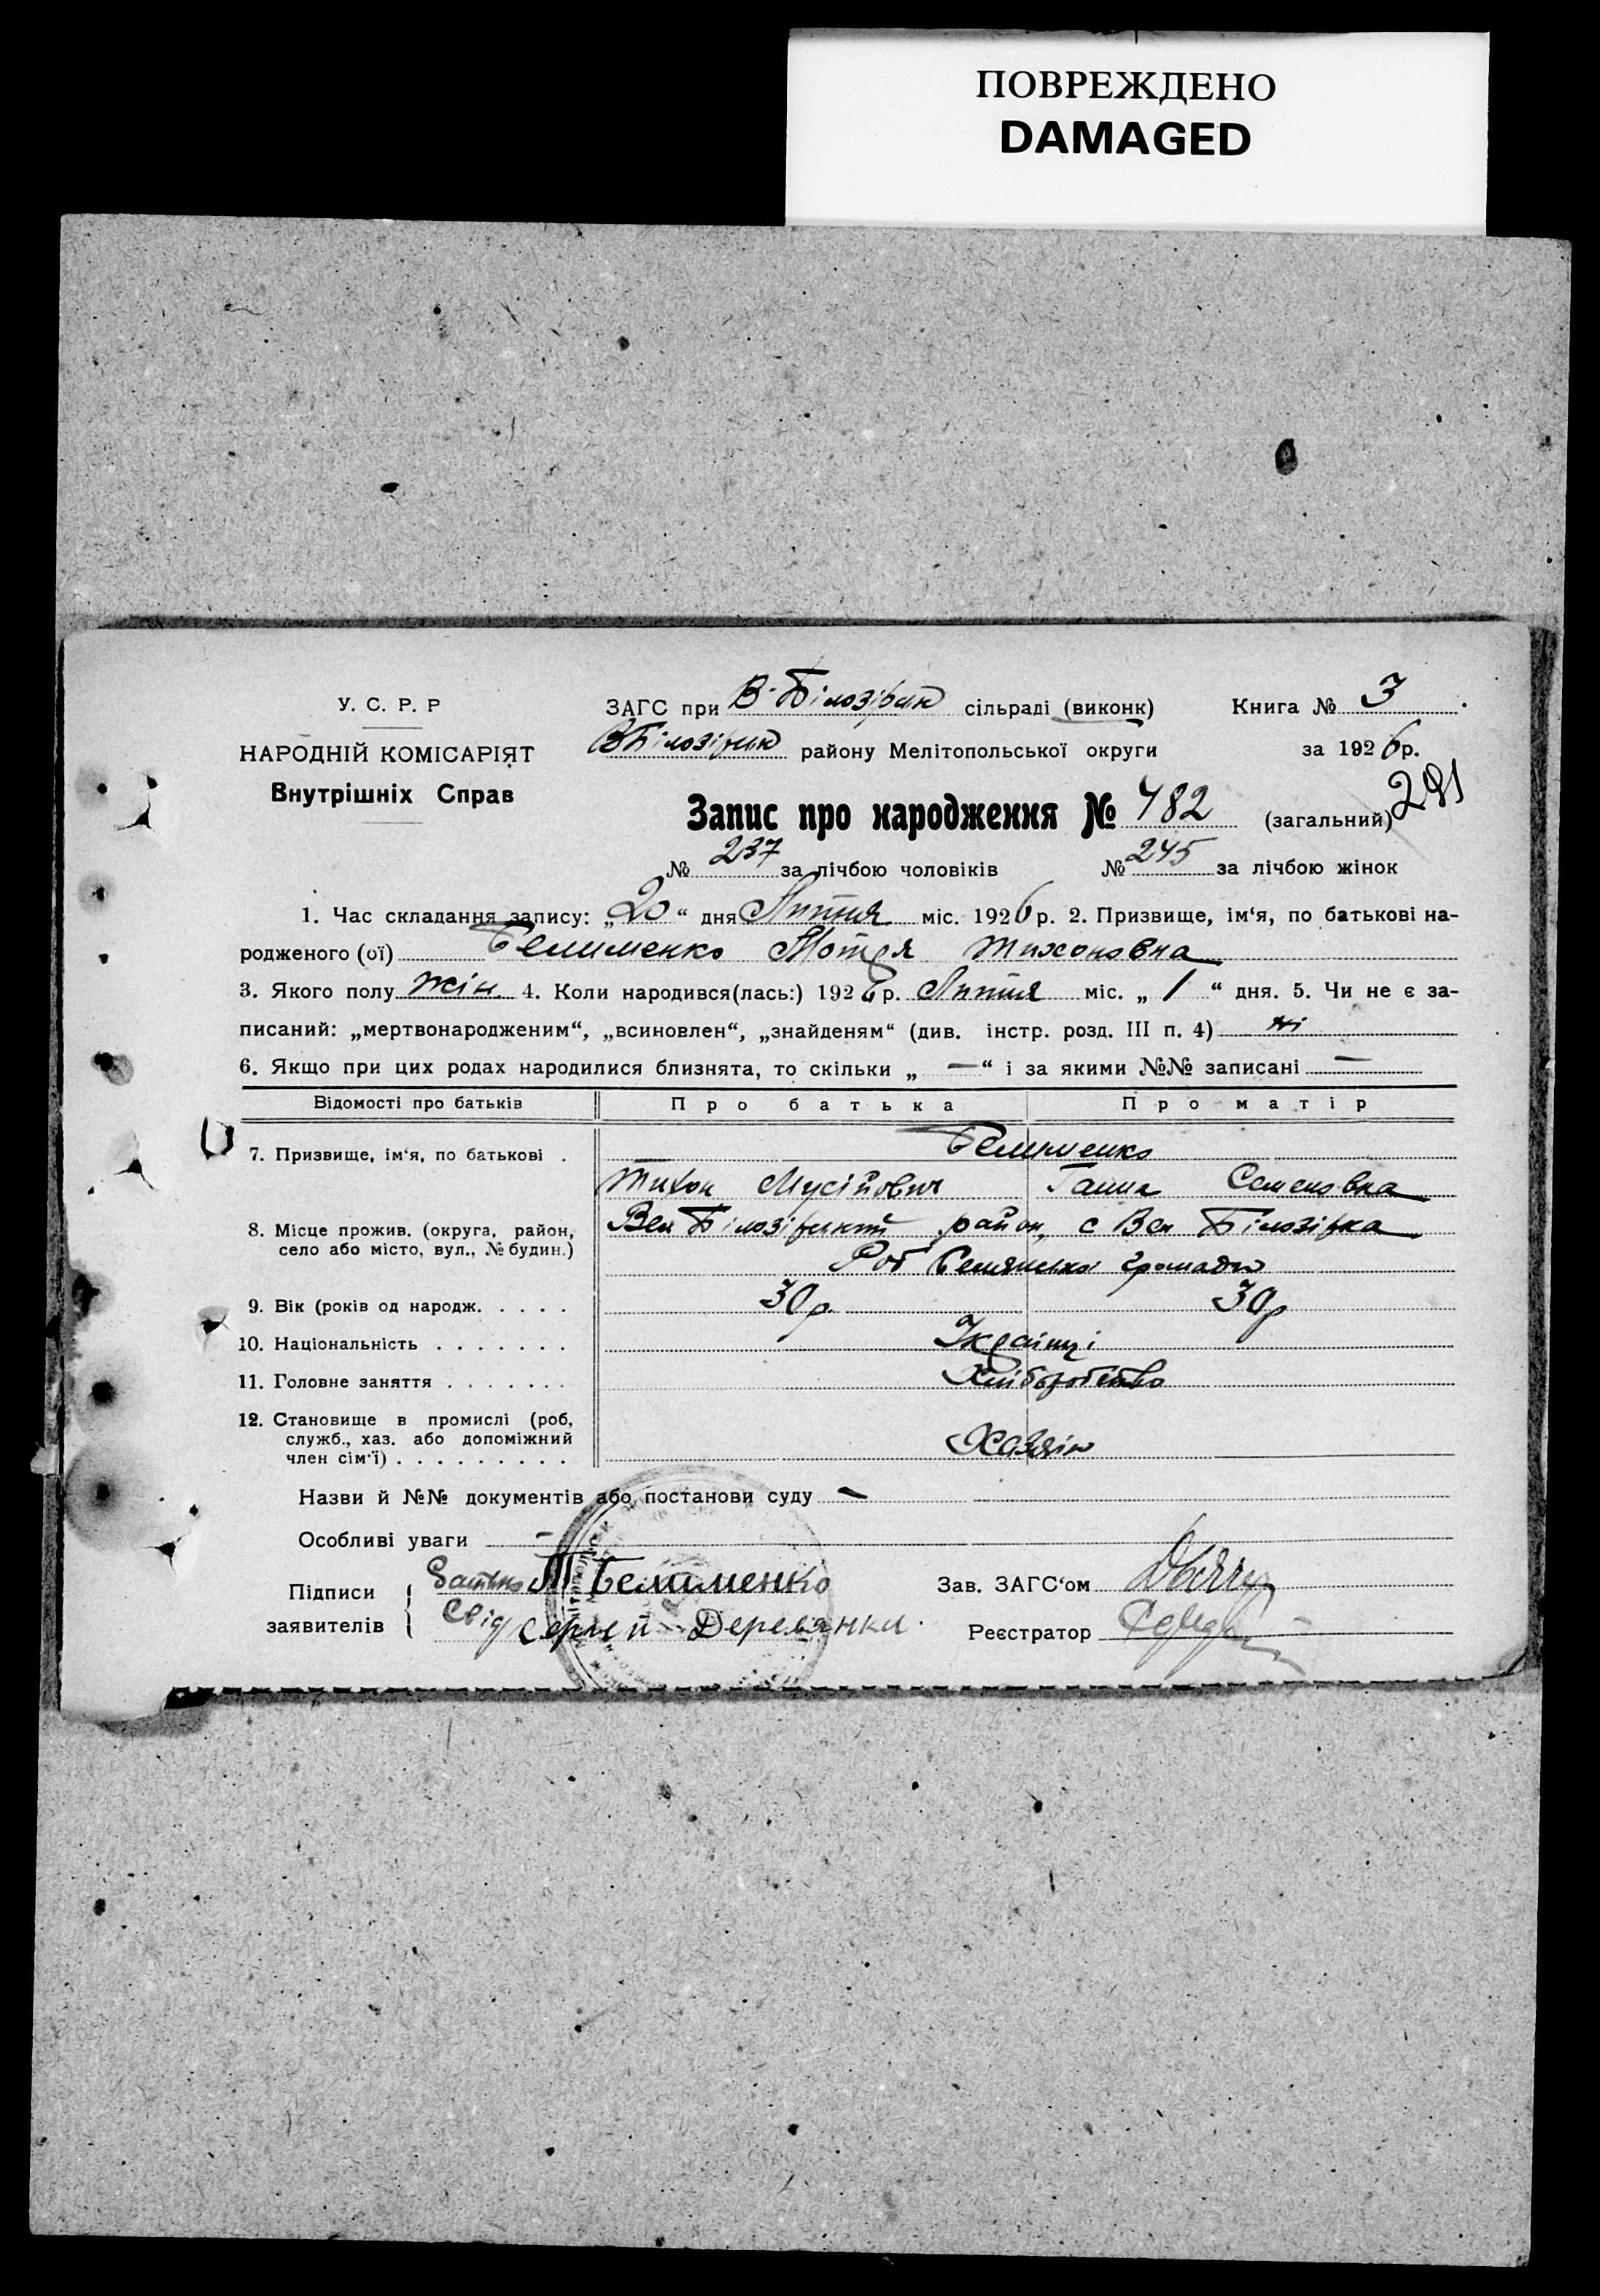 ПОВРЕЖДЕНО
DAMAGED
У. С. Р. Р
НАРОДНІЙ КОМІСАРІЯТ
Внутрішніх Справ
ЗАГС при В-Білозірск сільраді (виконк) Книга № 3
ВБілозірск району Мелітопольської округи за 1926 р.
Запис про народження № 482 (загальний) 291
№ 237 за лічбою чоловіків № 245 за лічбою жінок
1. Час складання запису: „20“ дня Липня міс. 1926 р. 2. Призвище, ім‘я, по батькові на-
родженого (ої) Белименко Мотря Тихоновна
3. Якого полу жін. 4. Коли народився(лась:) 1926 р. Липня міс. „1“ дня. 5. Чи не є за-
писаний: „мертвонародженим“, „всиновлен“, „знайденям“ (див. інстр. розд. III п. 4) ні
6. Якщо при цих родах народилися близнята, то скільки „—“ і за якими №№ записані —
Відомості про батьків Про батька Про матір
7. Призвище, ім‘я, по батькові . Белименко
Тихон Мусійович Ганна Семеновна
8. Місце прожив. (округа, район, село або місто, вул., № будин.) Вел Білозірський район, с Вел Білозірка
громади
9. Вік (років од народж. . . . . 30 р. 30 р
10. Національність . . . . . . . Українці
11. Головне заняття . . . . . . . Хліборобство
12. Становище в промислі (роб, служб., хаз. або допоміжний член сім‘ї) . . . . . . . . . Хазяін
Назви й №№ документів або постанови суду —
Особливі уваги —
Підписи заявителів Батько Т Белименко Зав. ЗАГС‘ом
Свід Сергей Деревянка. Реєстратор